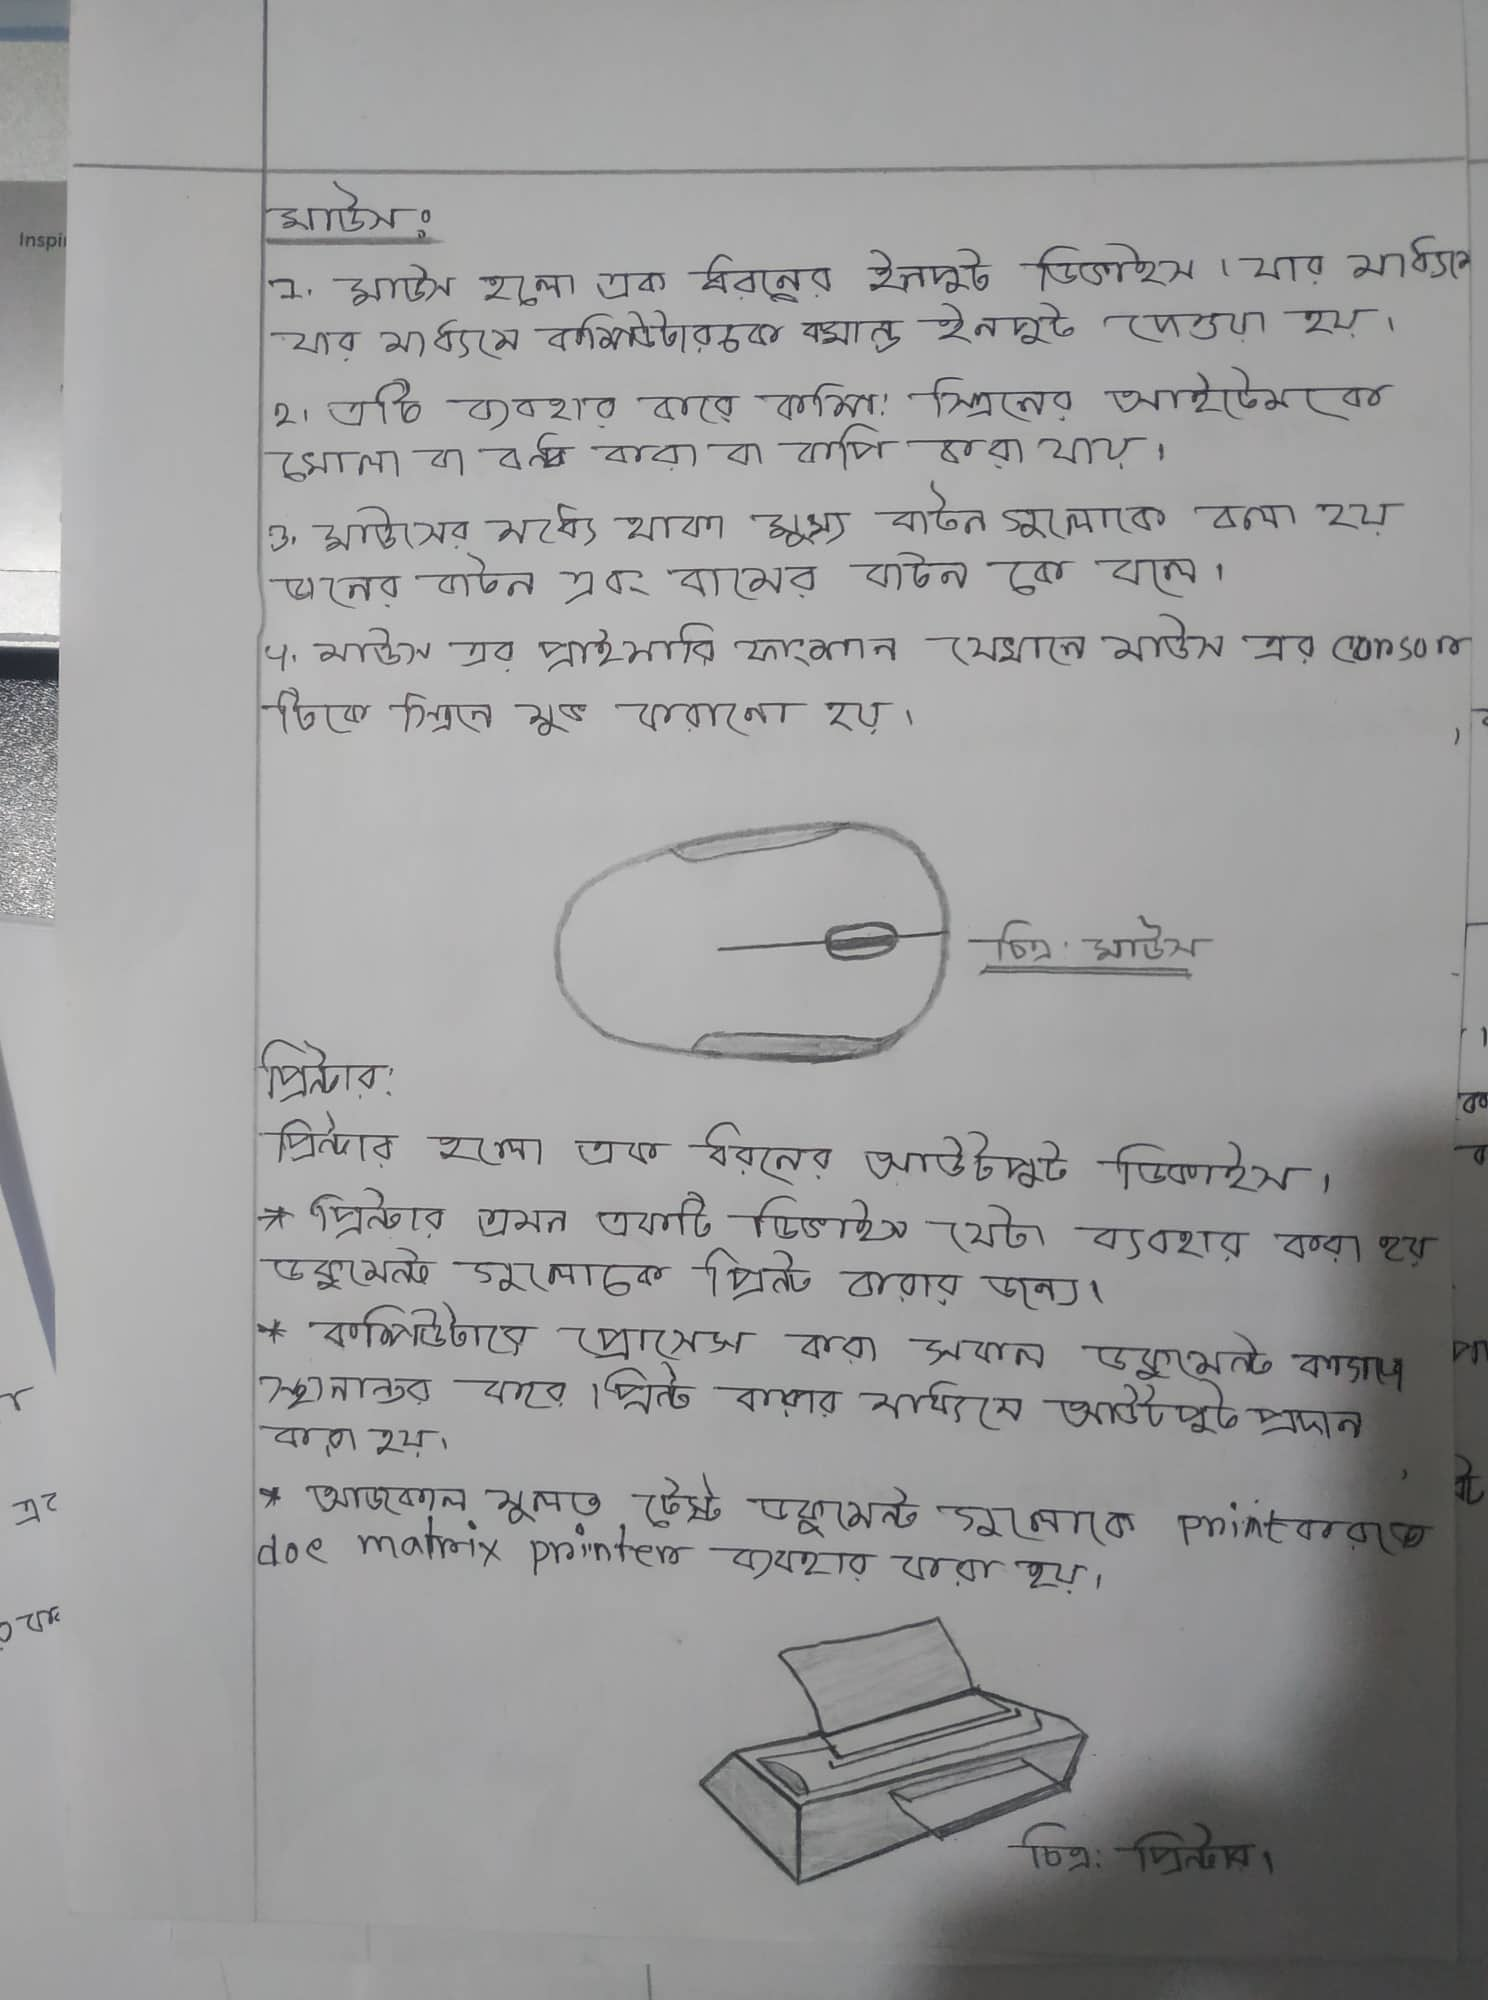 Inspi
মাউস:
১. মাউস হলো এক ধরনের ইনপুট ডিভাইস। যার মাধ্যমে
যার মাধ্যমে কম্পিউটারকে কমান্ড ইনপুট দেওয়া হয়।
২। এটি ব্যবহার করে কম্পি: স্ক্রিনের আইটেমকে
খোলা বা বন্ধ করা বা কপি করা যায়।
৩. মাউসের মধ্যে থাকা মুখ্য বাটন গুলোকে বলা হয়
ডানের বাটন এবং বামের বাটন কে বলে।
৪. মাউস এর প্রাইমারি ফাংশান যেখানে মাউস এর consor
টিকে স্ক্রিনে মুভ করানো হয়।
চিত্র: মাউস
প্রিন্টার:
প্রিন্টার হলো এক ধরনের আউটপুট ডিভাইস।
* প্রিন্টার এমন একটি ডিভাইস যেটা ব্যবহার করা হয়
ডকুমেন্ট গুলোকে প্রিন্ট করার জন্যে।
* কম্পিউটারে প্রোসেস করা সকল ডকুমেন্ট কাগজে
স্থানান্তর করে। প্রিন্ট করার মাধ্যমে আউটপুট প্রদান
করা হয়।
* আজকাল মূলত টেস্ট ডকুমেন্ট গুলোকে print করতে
doe matrix printer ব্যবহার করা হয়।
চিত্র: প্রিন্টার।